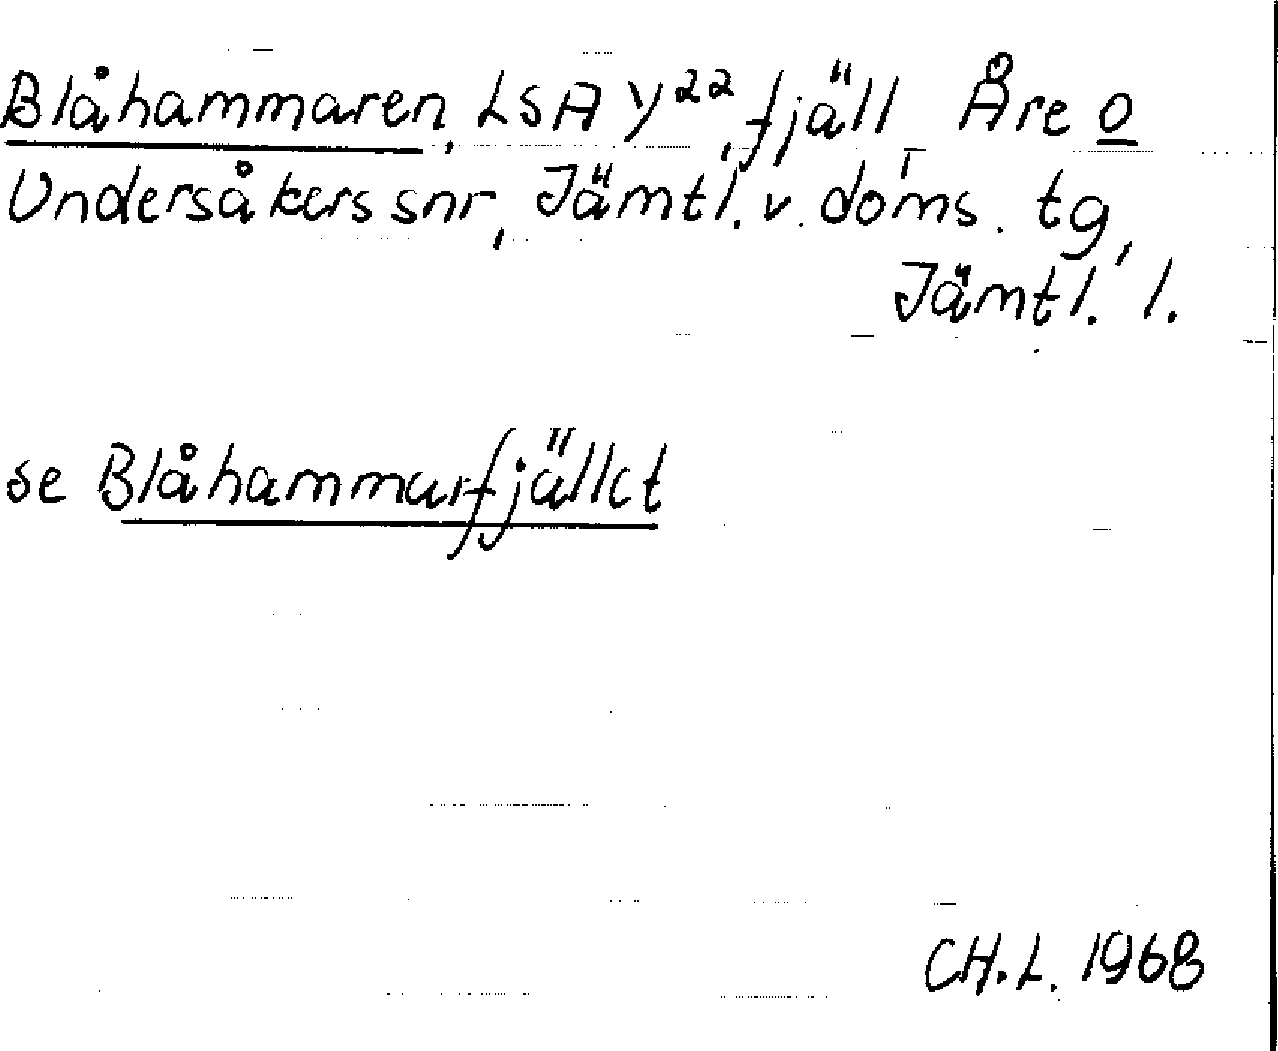 Blåhammaren, LSA Y²², fjäll, Åre o
Undersåkers snr, Jämtl. v. doms. tg,
Jämtl. l.
se Blåhammarfjället
CH.L. 1968